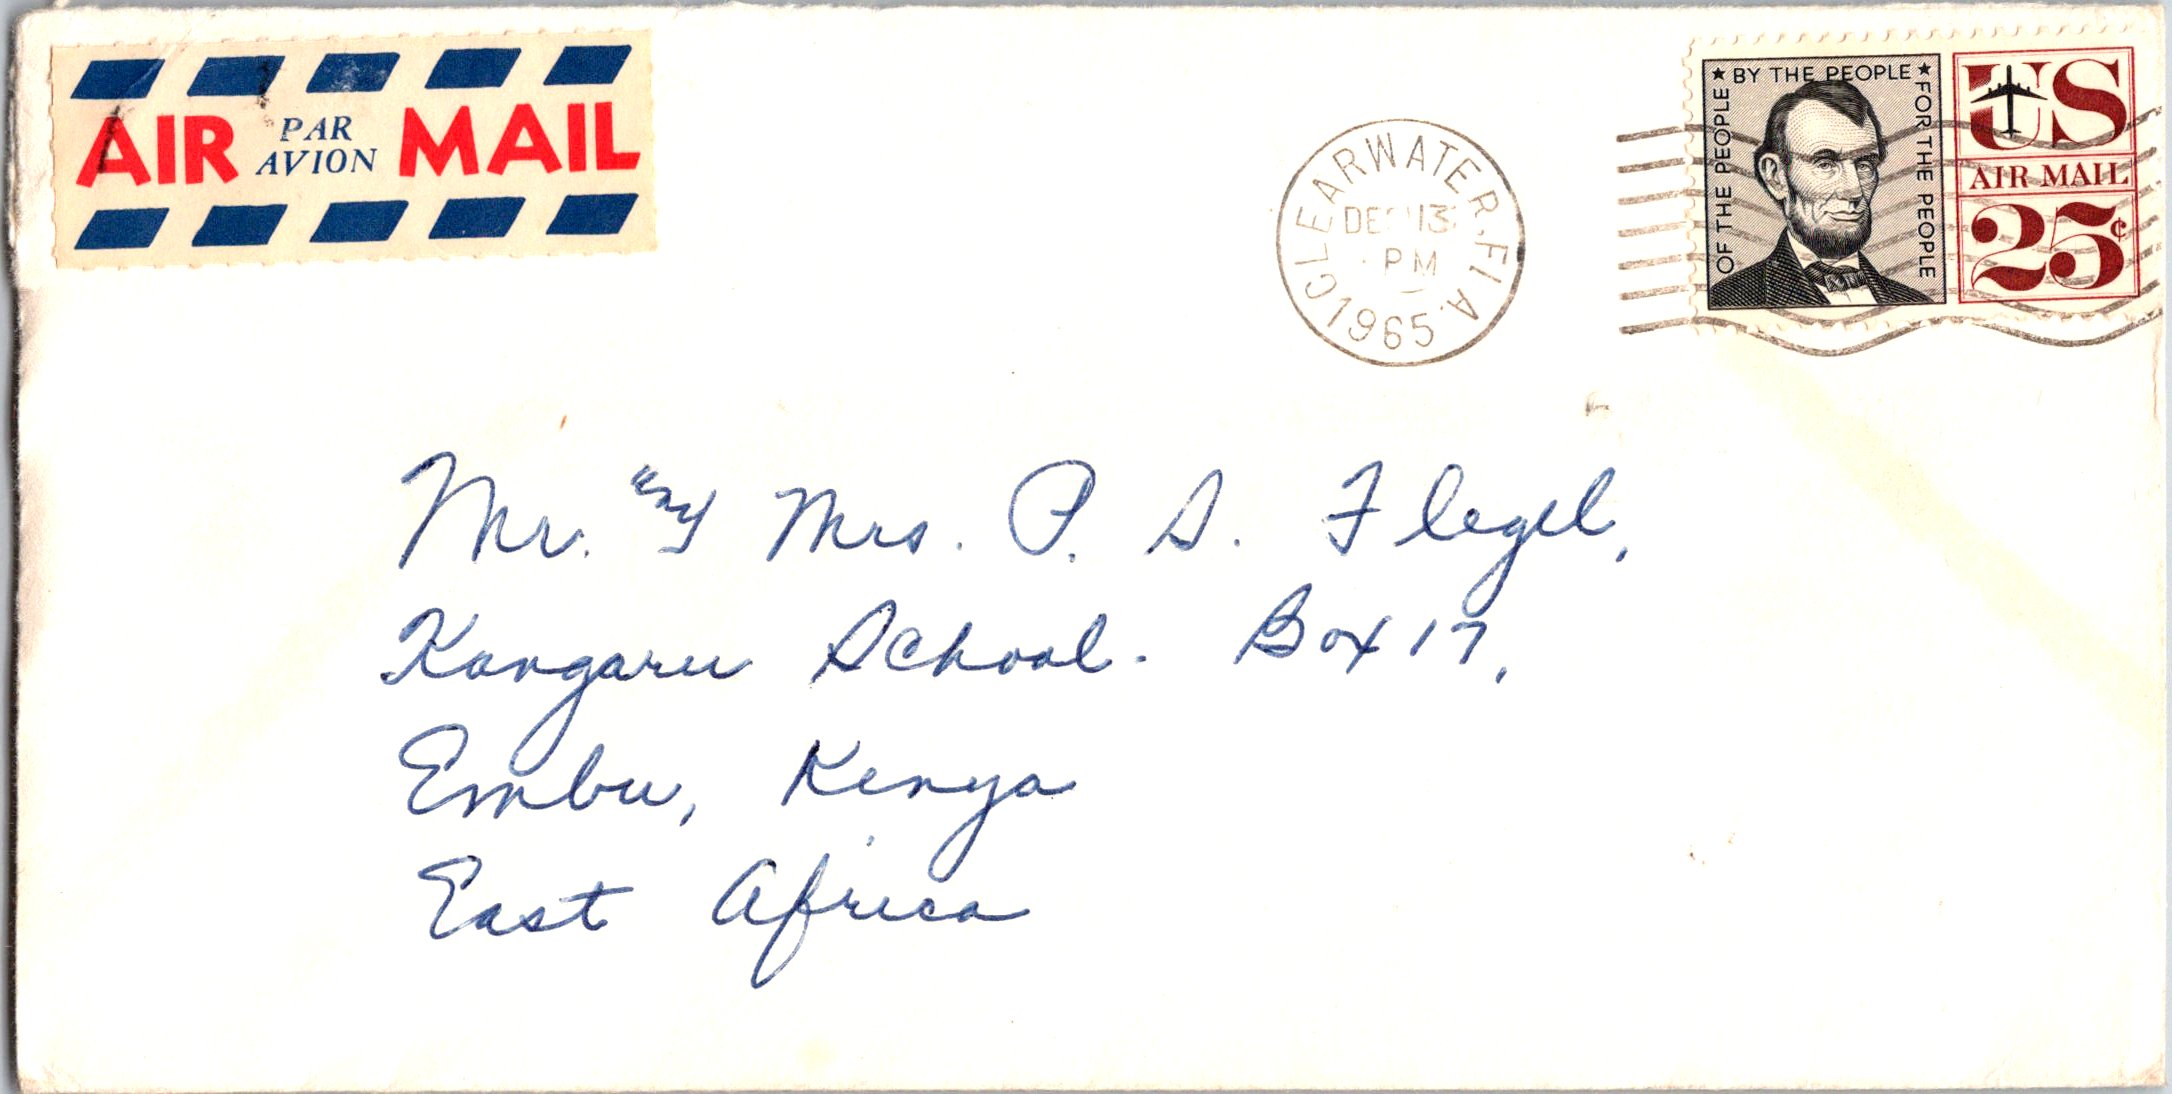 AIR PAR AVION MAIL
CLEARWATER, FLA.
DEC 13
PM
1965
OF THE PEOPLE ★ BY THE PEOPLE ★ FOR THE PEOPLE
US
AIR MAIL
25¢
Mr. and Mrs. P. S. Flegel,
Kangaru School. Box 17,
Embu, Kenya
East Africa